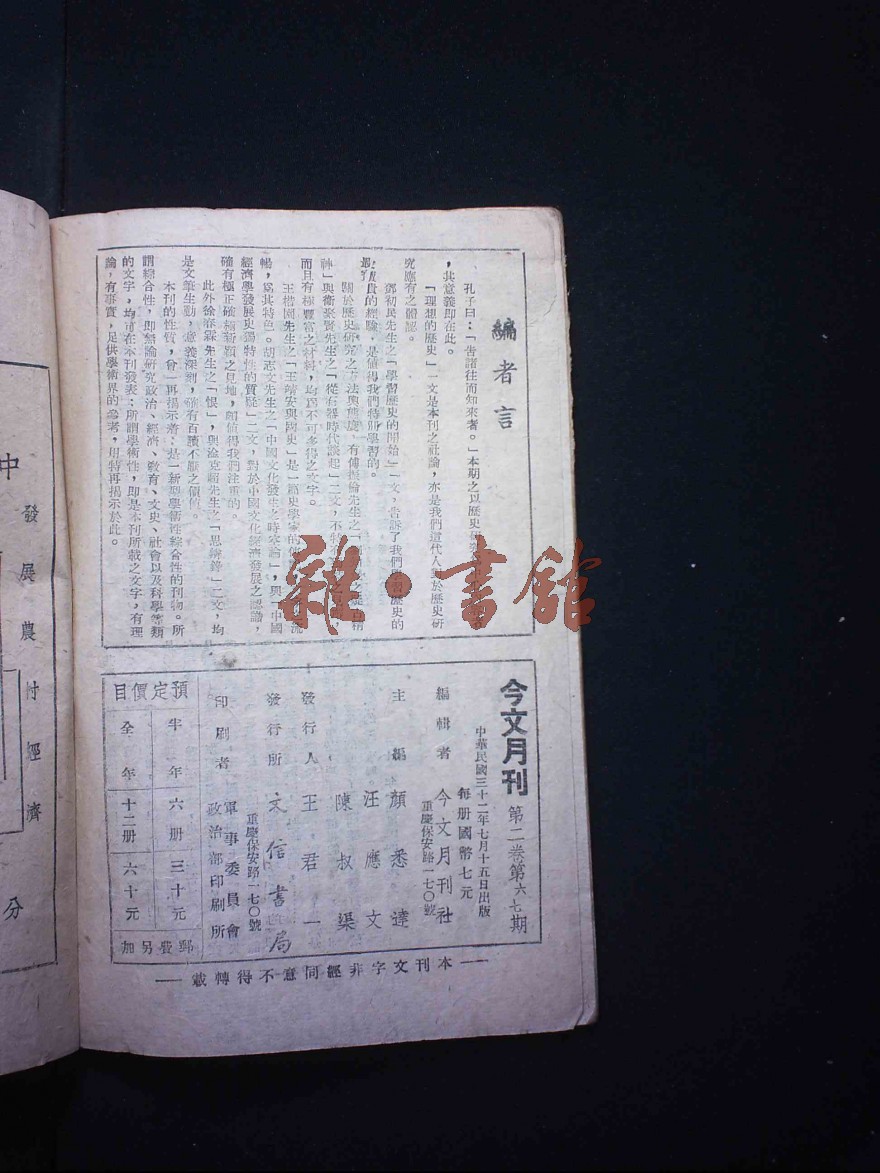 編者言
孔子曰：「告諸往而知來者。」本期之以歷史研
，其意義即在此。
「理想的歷史」一文是本刊之社論，亦是我們這代人對於歷史研
究應有之體認。
鄧初民先生之「學習歷史的開始」一文，告訴了我們學習歷史的
貴的經驗，是值得我們特別學習的。
關於歷史研究之方法與態度，有傅振倫先生之「
神」與衛聚賢先生之「從石器時代談起」二文，不特
而且有極豐富之材料，均為不可多得之文字。
王楷園先生之「王靜安與國史」是一篇史學家的傳
暢，為其特色。胡志文先生之「中國文化發生之時空論」，與「中國
經濟學發展史獨特性的質疑」二文，對於中國文化經濟發展之認識，
確有極正確極新穎之見地，頗值得我們注重的。
此外徐春霖先生之「恨」，與淦克超先生之「思辨錄」二文，均
是文筆生動，意義深刻，確有百讀不厭之價值。
本刊的性質，會一再揭示着：是一新型學術性綜合性的刊物。所
謂綜合性，即無論研究政治、經濟、教育、文史、社會以及科學等類
的文字，均可在本刊發表：所謂學術性，即是本刊所載之文字，有理
論，有事實，足供學術界的參考，用特再揭示於此。
今文月刊 第二卷第六七期
中華民國三十二年七月十五日出版
每册國幣七元
編輯者 今文月刊社
重慶保安路一七〇號
主編 顏悉達
汪應文
陳叔渠
發行人 王君一
發行所 文信書局
重慶保安路一七〇號
印刷者 軍事委員會
政治部印刷所
預定價目
半年 六册 三十元
全年 十二册 六十元
郵費另加
本刊文字非經同意不得轉載
中
發展農村經濟
分
雜·書館